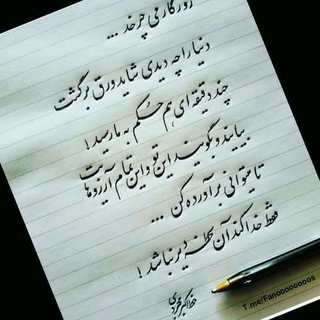 روزگار می چرخد ...
دنیا را چه دیدی شاید ورق برگشت
چند دقیقه ای هم حکم به ما رسید !
بیایند و بگویند این تو و این تمام آرزوهایت
تا میتوانی برآورده کن ...
فقط خدا کند آن لحظه دیر نباشد !
T.me/Fanoooooooos